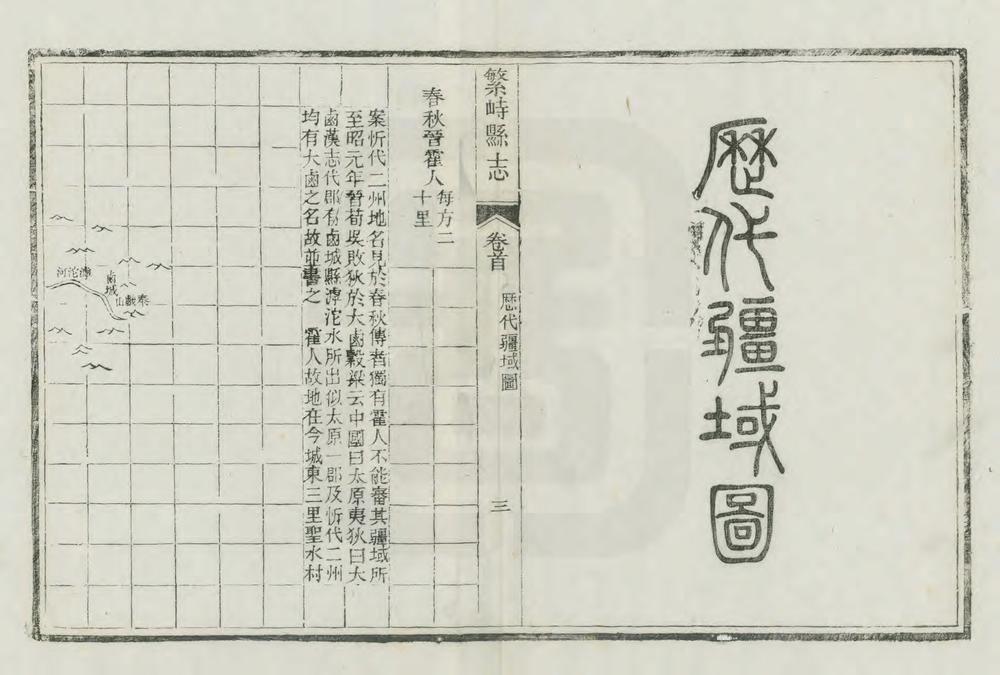 歷代疆域圖
繁峙縣志
卷首
歷代疆域圖
三
春秋晉霍人
每方二
十里
案忻代二州地名見於春秋傳者獨有霍人不能審其疆域所
至昭元年晉荀吳敗狄於大鹵穀梁云中國曰太原夷狄曰大
鹵漢志代郡有鹵城縣滹沱水所出似太原一郡及忻代二州
均有大鹵之名故並書之　霍人故地在今城東三里聖水村
泰戲山
鹵城
滹沱河